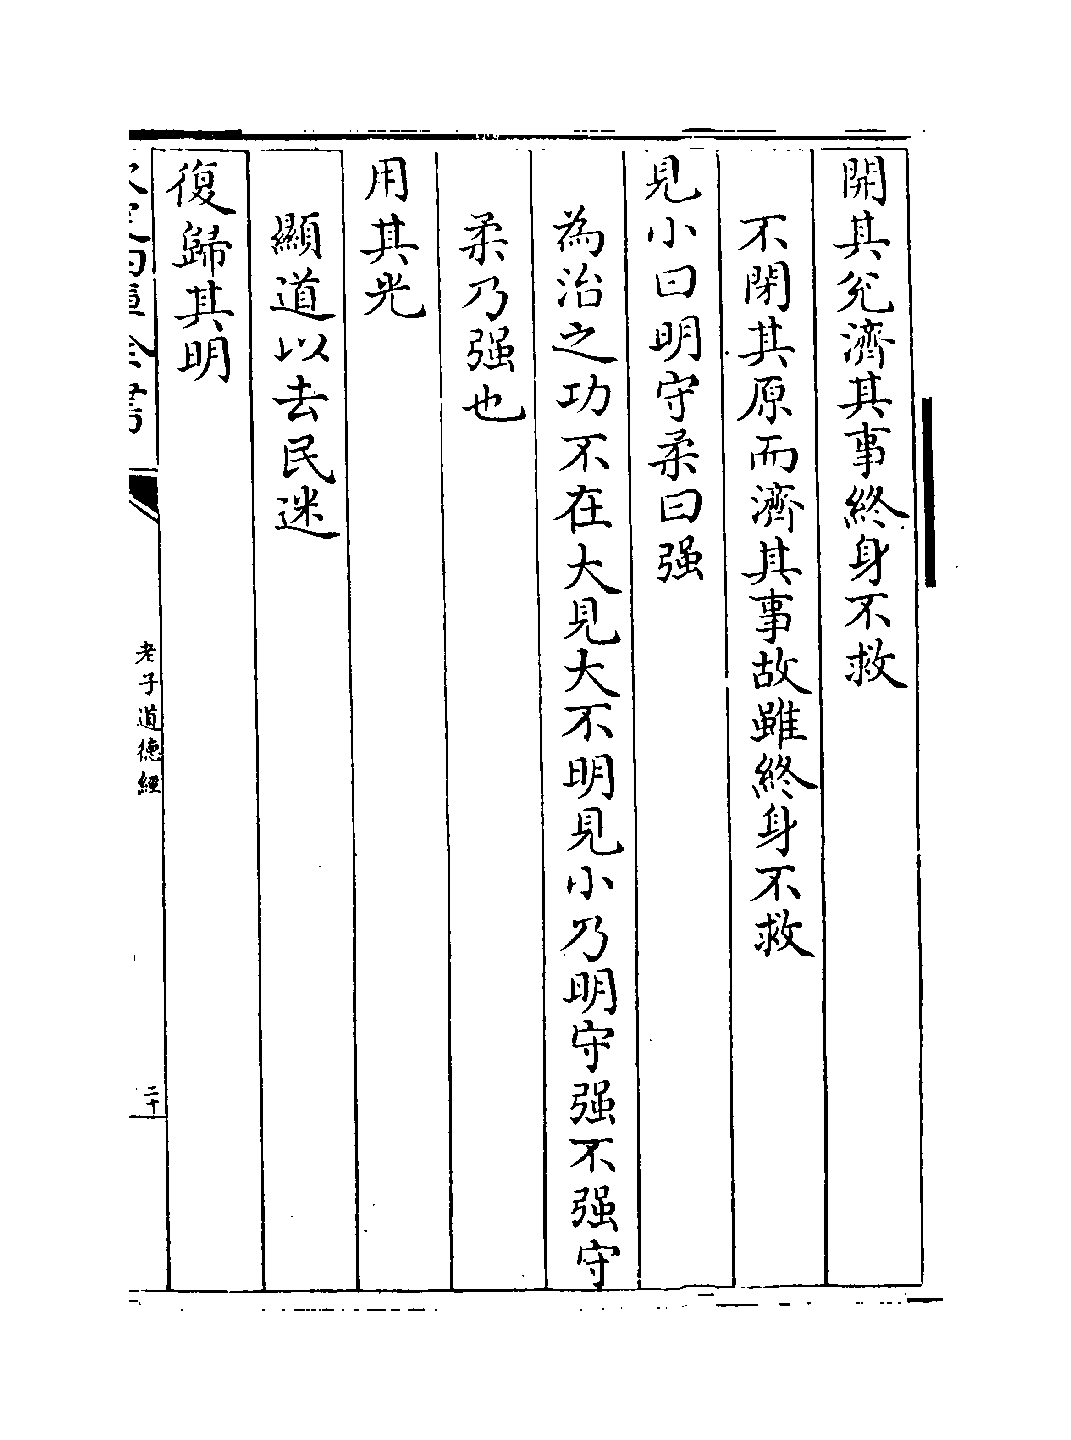 開其兊濟其事終身不救
不閉其原而濟其事故雖終身不救
見小曰明守柔曰强
為治之功不在大見大不明見小乃明守强不强守
柔乃强也
用其光
顯道以去民迷
復歸其明
欽定四庫全書
老子道德經
二十